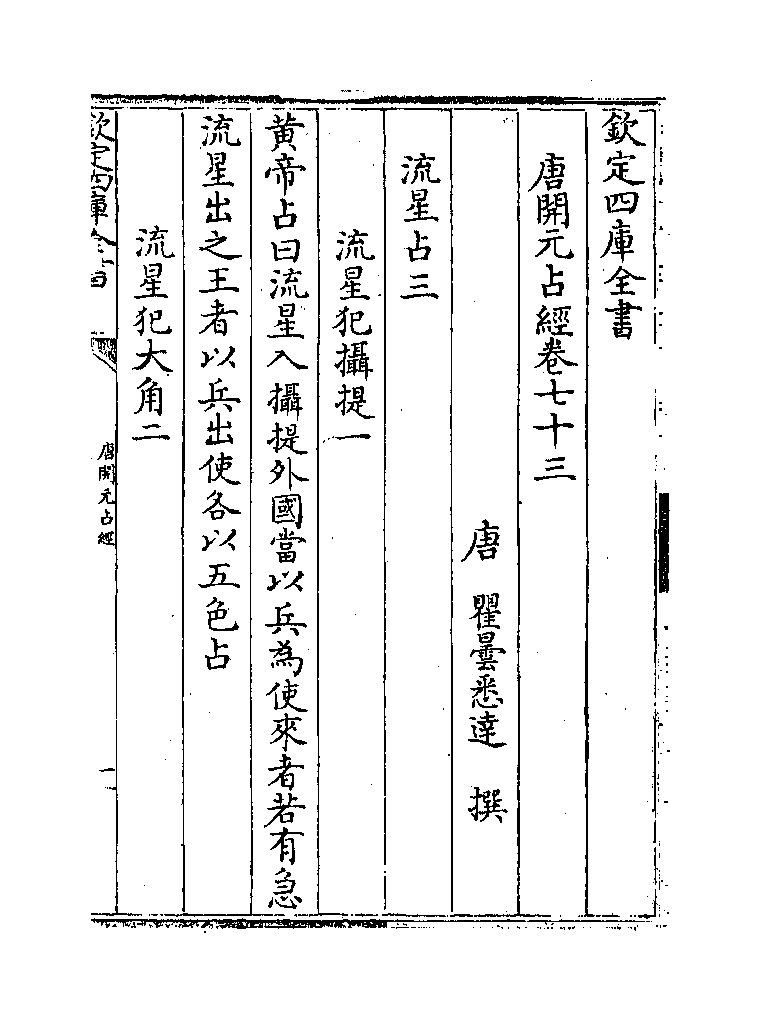 欽定四庫全書
唐開元占經卷七十三
唐　瞿曇悉達　撰
流星占三
流星犯攝提一
黃帝占曰流星入攝提外國當以兵為使來者若有急
流星出之王者以兵出使各以五色占
流星犯大角二
欽定四庫全書
唐開元占經
一